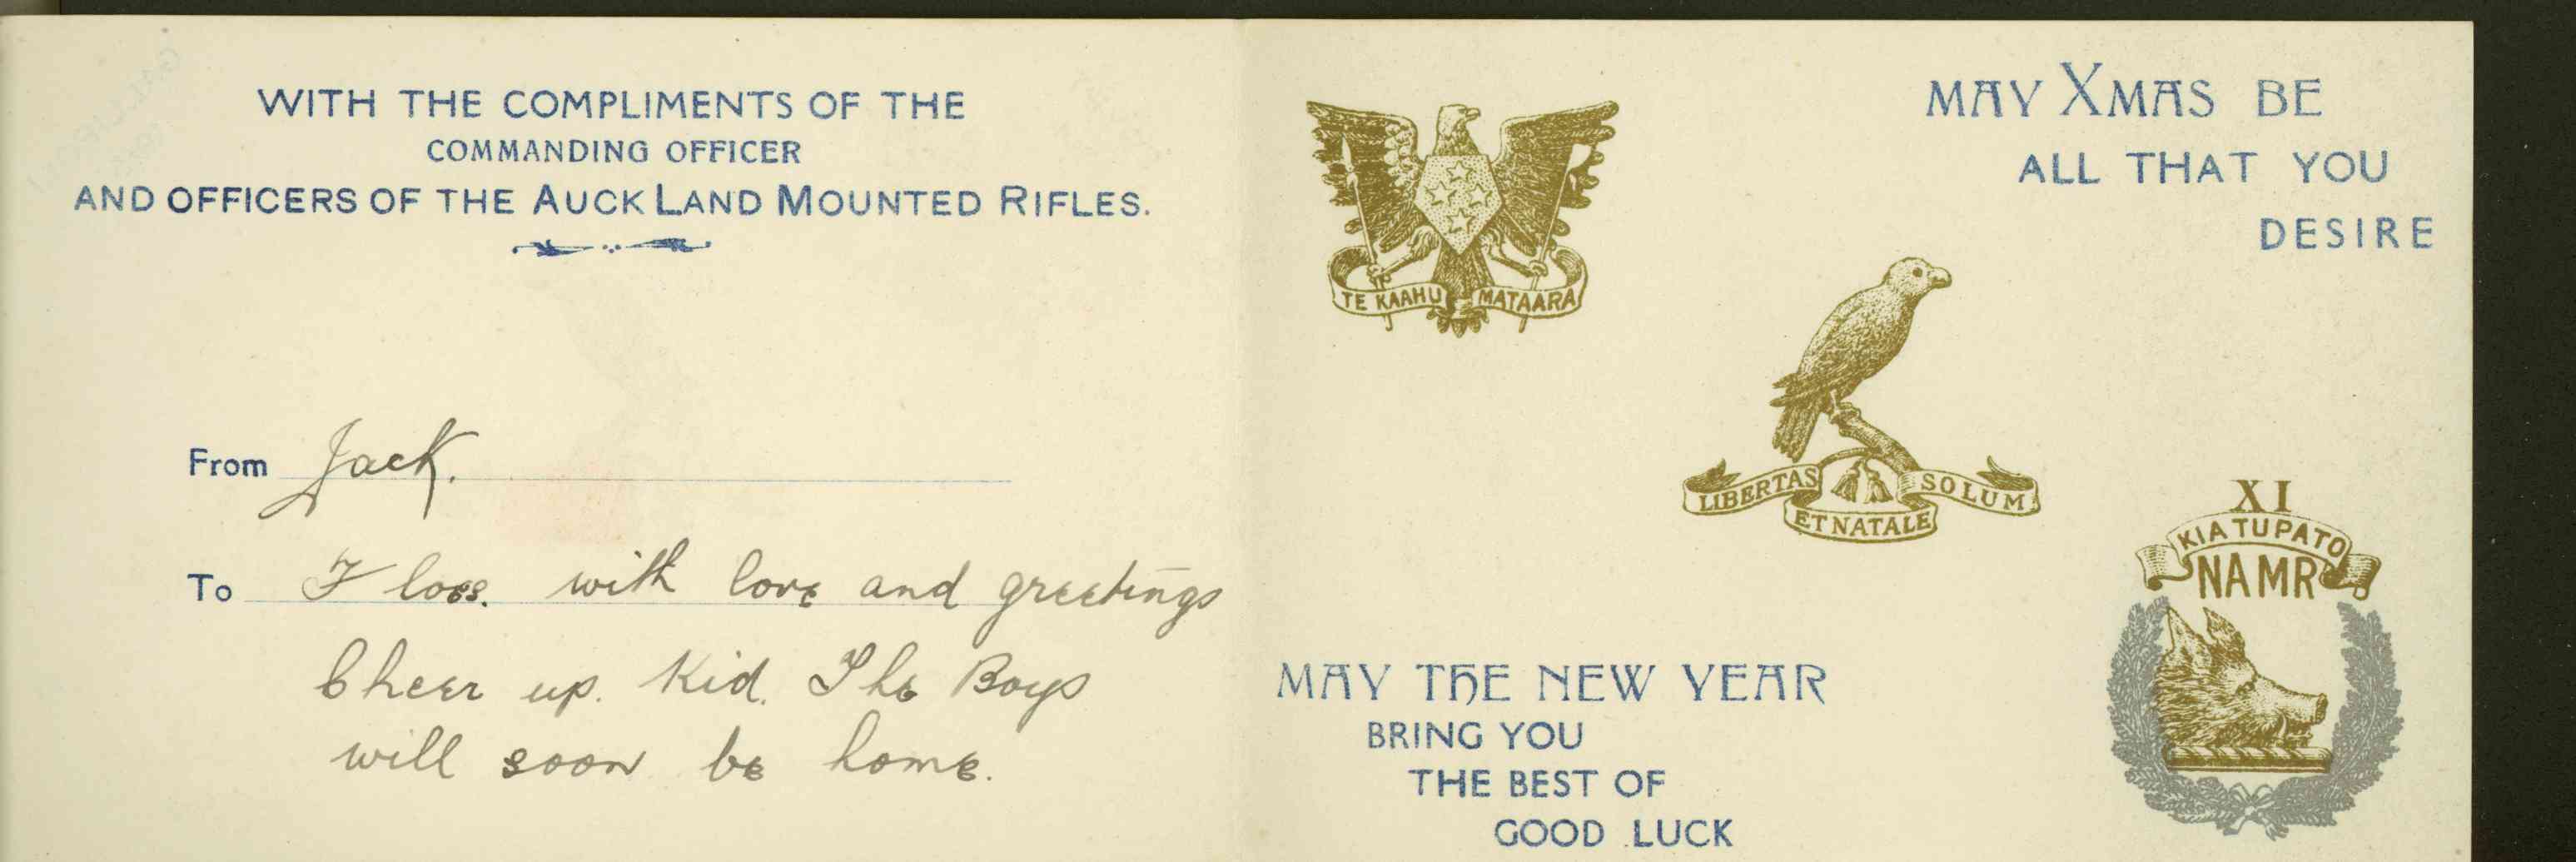 WITH THE COMPLIMENTS OF THE
COMMANDING OFFICER
AND OFFICERS OF THE AUCKLAND MOUNTED RIFLES.
From Jack.
To Floss. with love and greetings
Cheer up. Kid. The Boys
will soon be home.
MAY XMAS BE
ALL THAT YOU
DESIRE
TE KAAHU MATAARA
LIBERTAS SOLUM
ET NATALE
XI
KIA TUPATO
NAMR
MAY THE NEW YEAR
BRING YOU
THE BEST OF
GOOD LUCK